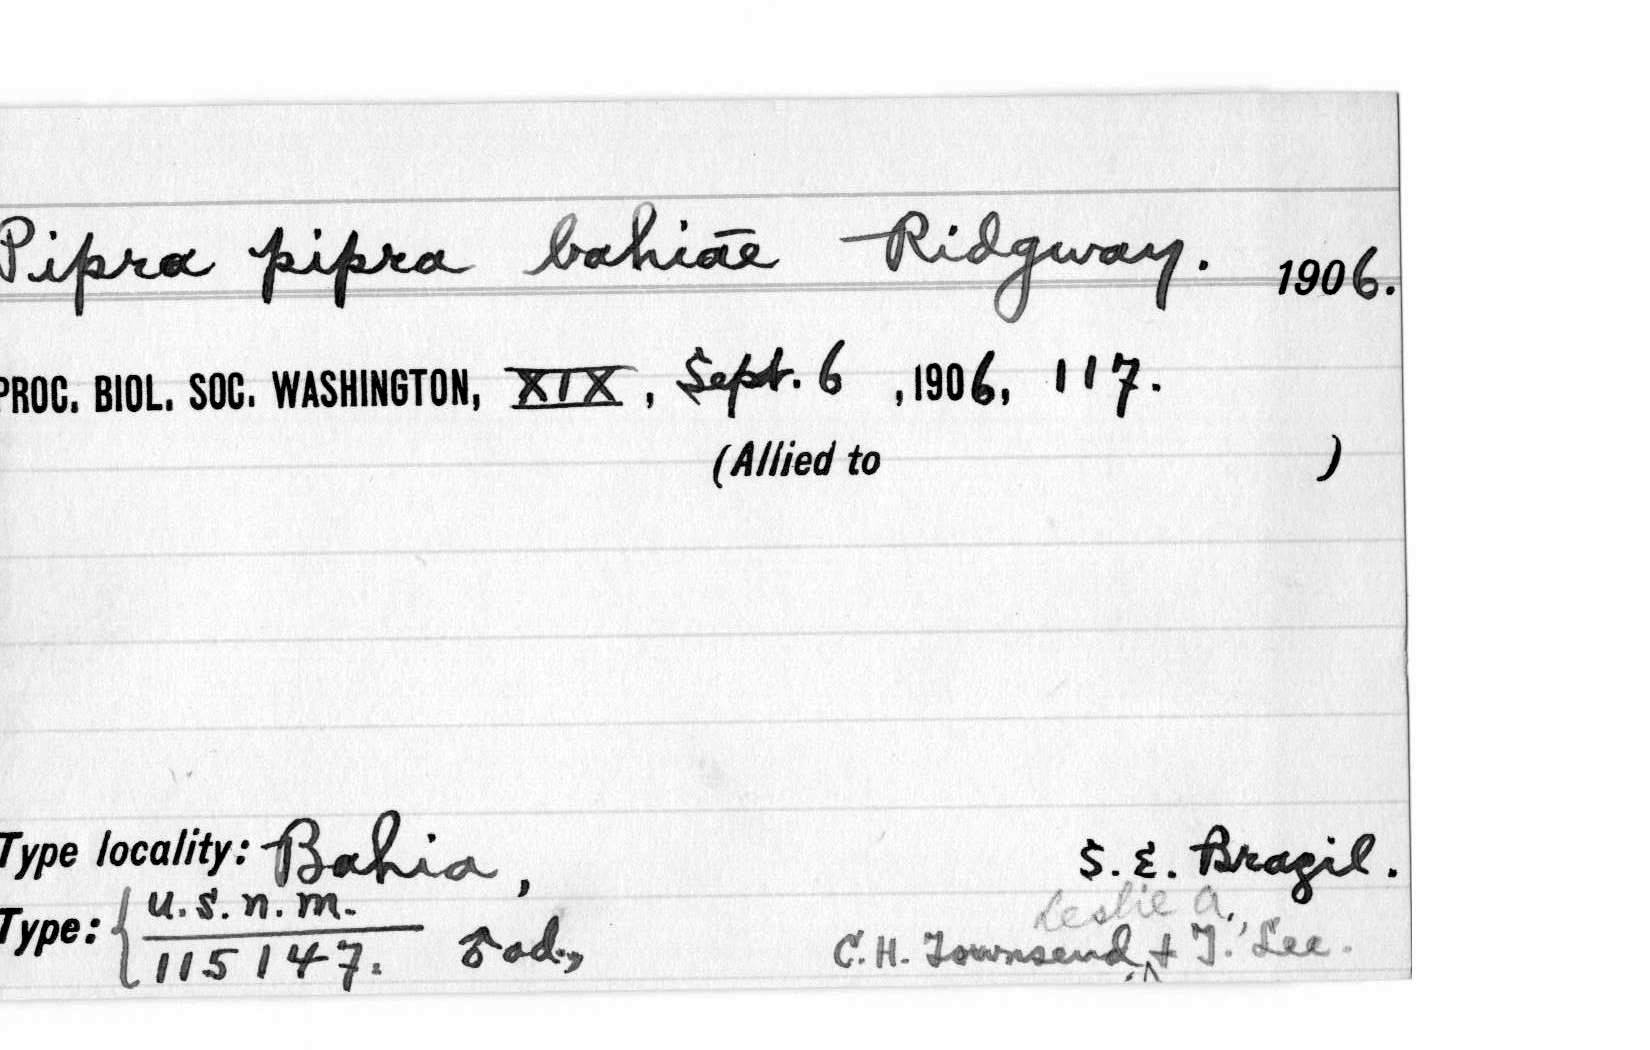 Pipra pipra bahiae Ridgway. 1906.
PROC. BIOL. SOC. WASHINGTON, XIX, Sept. 6, 1906, 117.
(Allied to )
Type locality: Bahia, S. E. Brazil.
Leslie A.
Type: { U.S.N.M. 115147. ♂ ad., C. H. Townsend, & T. Lee.